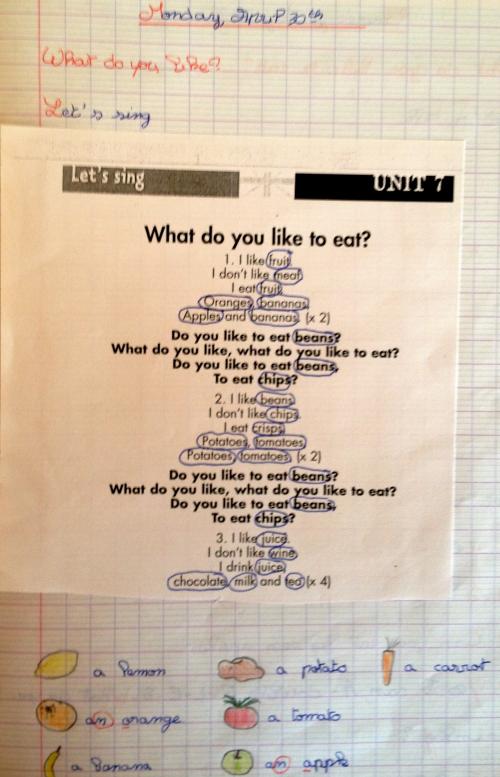 Monday, April 30th
What do you like?
Let's sing
Let's sing UNIT 7
What do you like to eat?
1. I like fruit.
I don't like meat.
I eat fruit.
Oranges, bananas,
Apples and bananas. (x 2)
Do you like to eat beans?
What do you like, what do you like to eat?
Do you like to eat beans,
To eat chips?
2. I like beans.
I don't like chips.
I eat crisps.
Potatoes, tomatoes,
Potatoes, tomatoes, (x 2)
Do you like to eat beans?
What do you like, what do you like to eat?
Do you like to eat beans,
To eat chips?
3. I like juice.
I don't like wine,
I drink juice,
chocolate, milk and tea (x 4)
a lemon a potato a carrot
an orange a tomato
a banana an apple